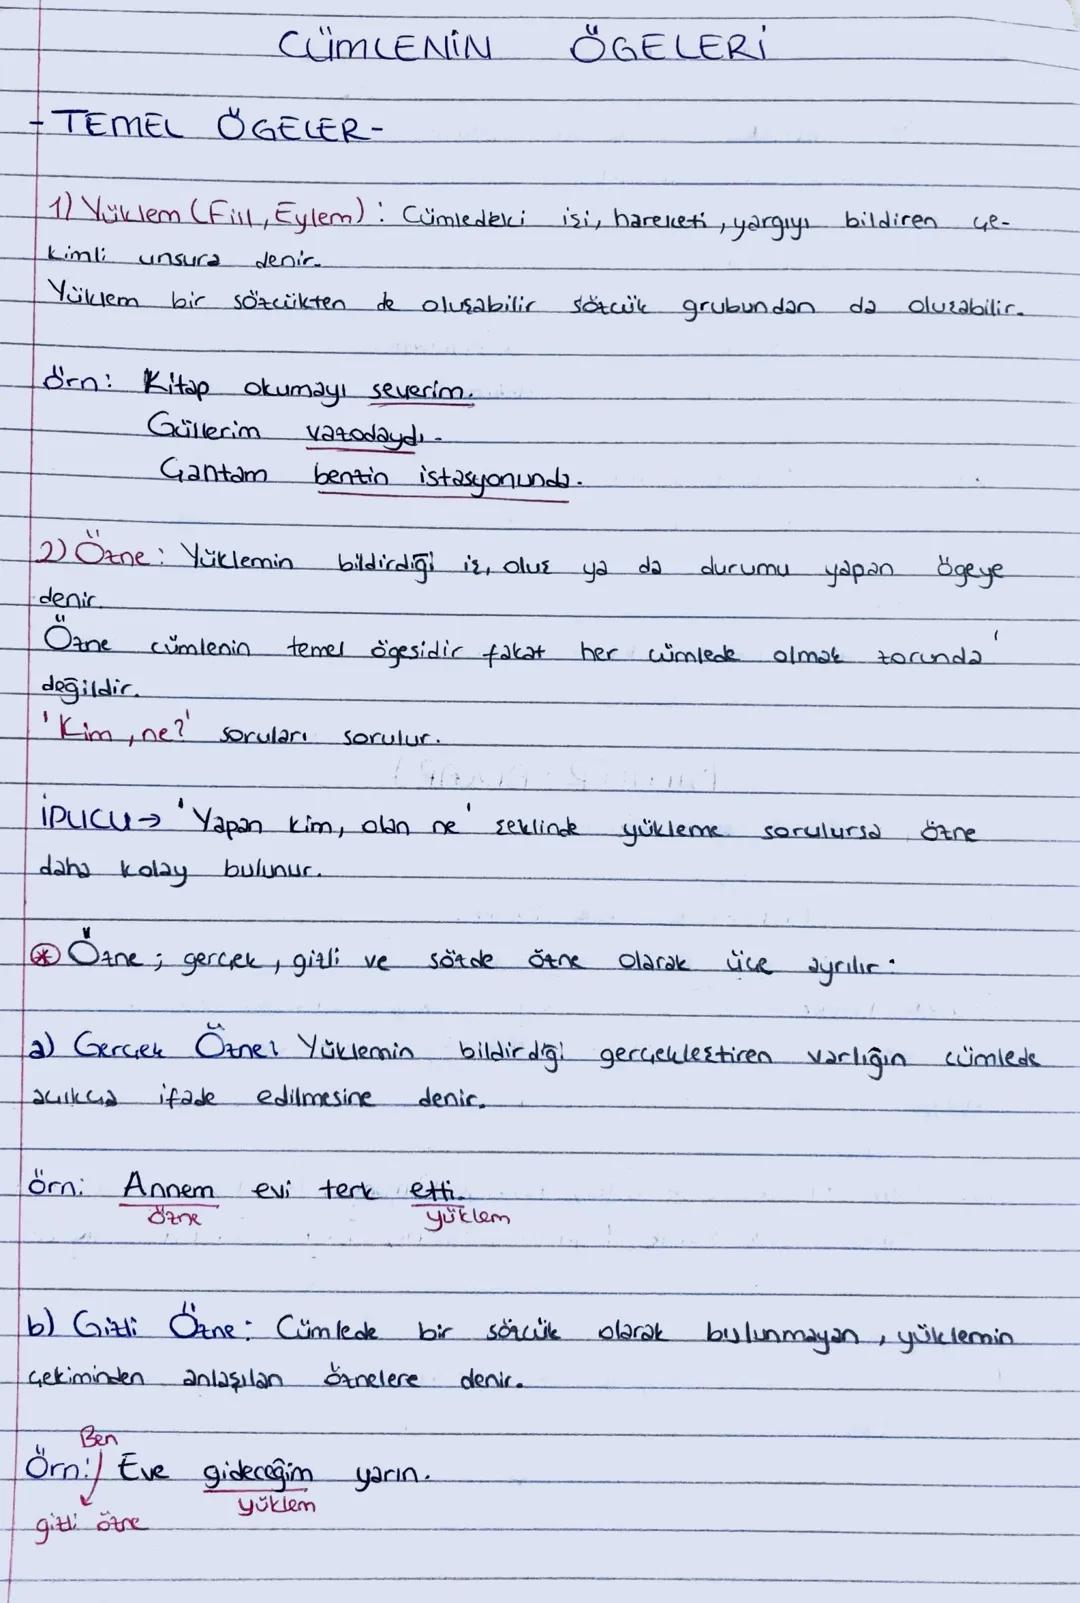 CÜMLENİN ÖGELERİ
- TEMEL ÖGELER-
1) Yüklem (Fiil, Eylem) : Cümledeki işi, hareketi, yargıyı bildiren çe-
kimli unsura denir.
Yüklem bir sözcükten de oluşabilir sözcük grubundan da oluşabilir.
Örn: Kitap okumayı severim.
Güllerim vazodaydı.
Çantam benzin istasyonunda.
2) Özne: Yüklemin bildirdiği iş, oluş ya da durumu yapan ögeye
denir.
Özne cümlenin temel ögesidir fakat her cümlede olmak zorunda
değildir.
'Kim, ne?' soruları sorulur.
İPUCU → 'Yapan kim, olan ne' şeklinde yükleme sorulursa özne
daha kolay bulunur.
* Özne; gerçek, gizli ve sözde özne olarak üçe ayrılır:
a) Gerçek Özne: Yüklemin bildirdiği gerçekleştiren varlığın cümlede
açıkça ifade edilmesine denir.
örn: Annem evi terk etti.
özne yüklem
b) Gizli Özne: Cümlede bir sözcük olarak bulunmayan, yüklemin
çekiminden anlaşılan öznelere denir.
Ben
Örn: / Eve gideceğim yarın.
yüklem
gizli özne